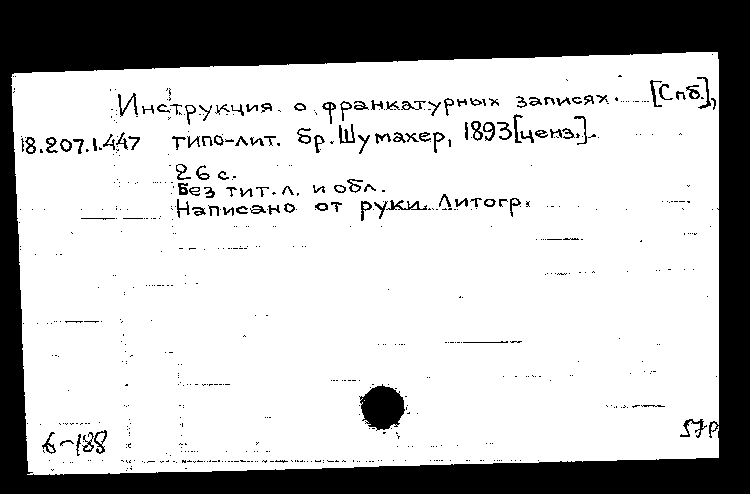 Инструкция о франкатурных записях. [Спб],
18.207.1.447 типо-лит. бр. Шумахер, 1893 [ценз.].
26 с.
Без тит. л. и обл.
Написано от руки. Литогр.
6-188
57р